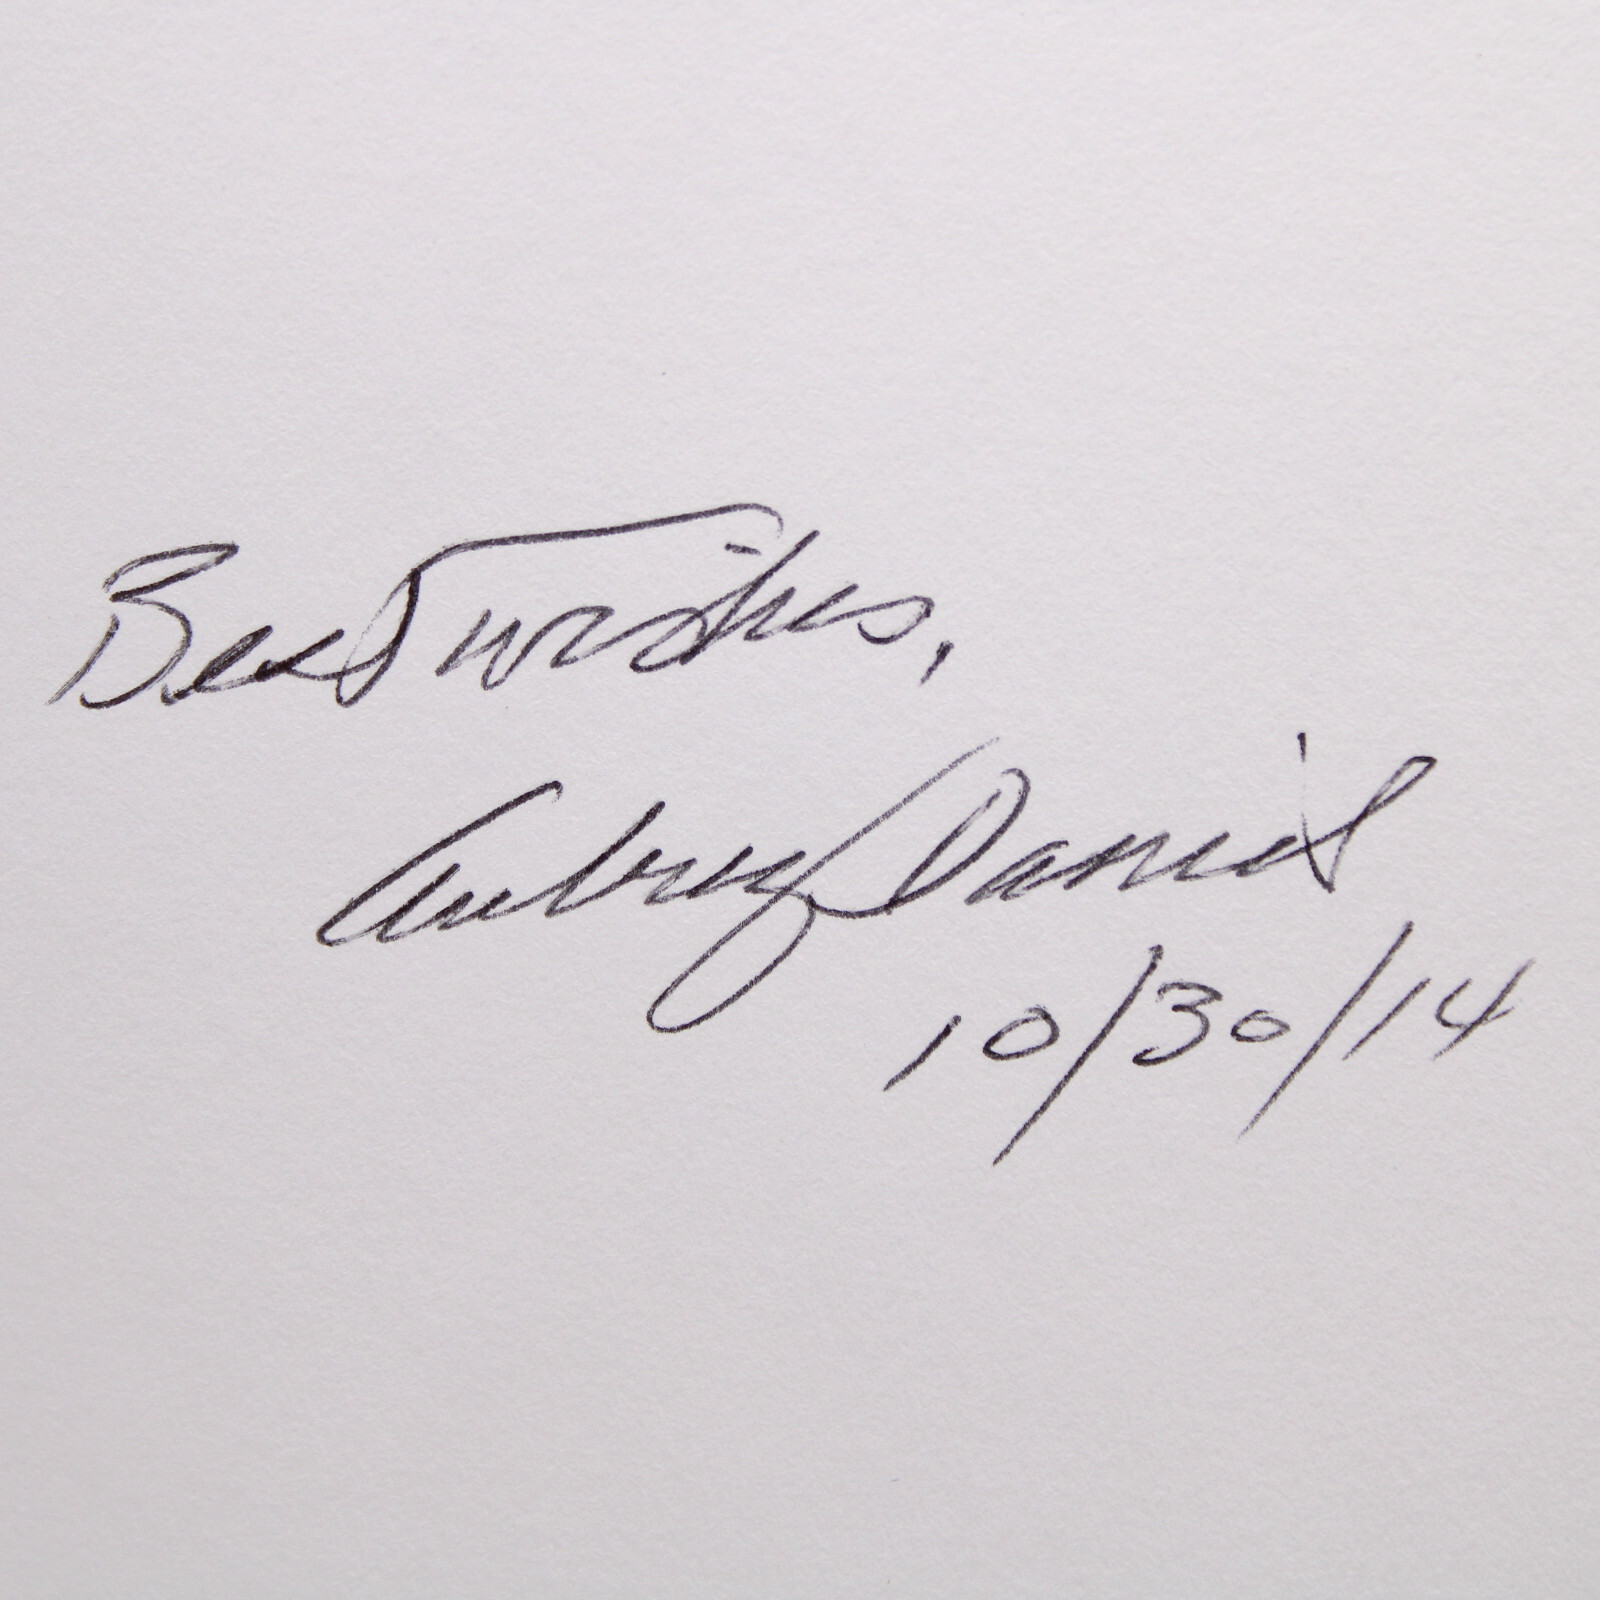 Best wishes,
Aubrey Daniel
10/30/14